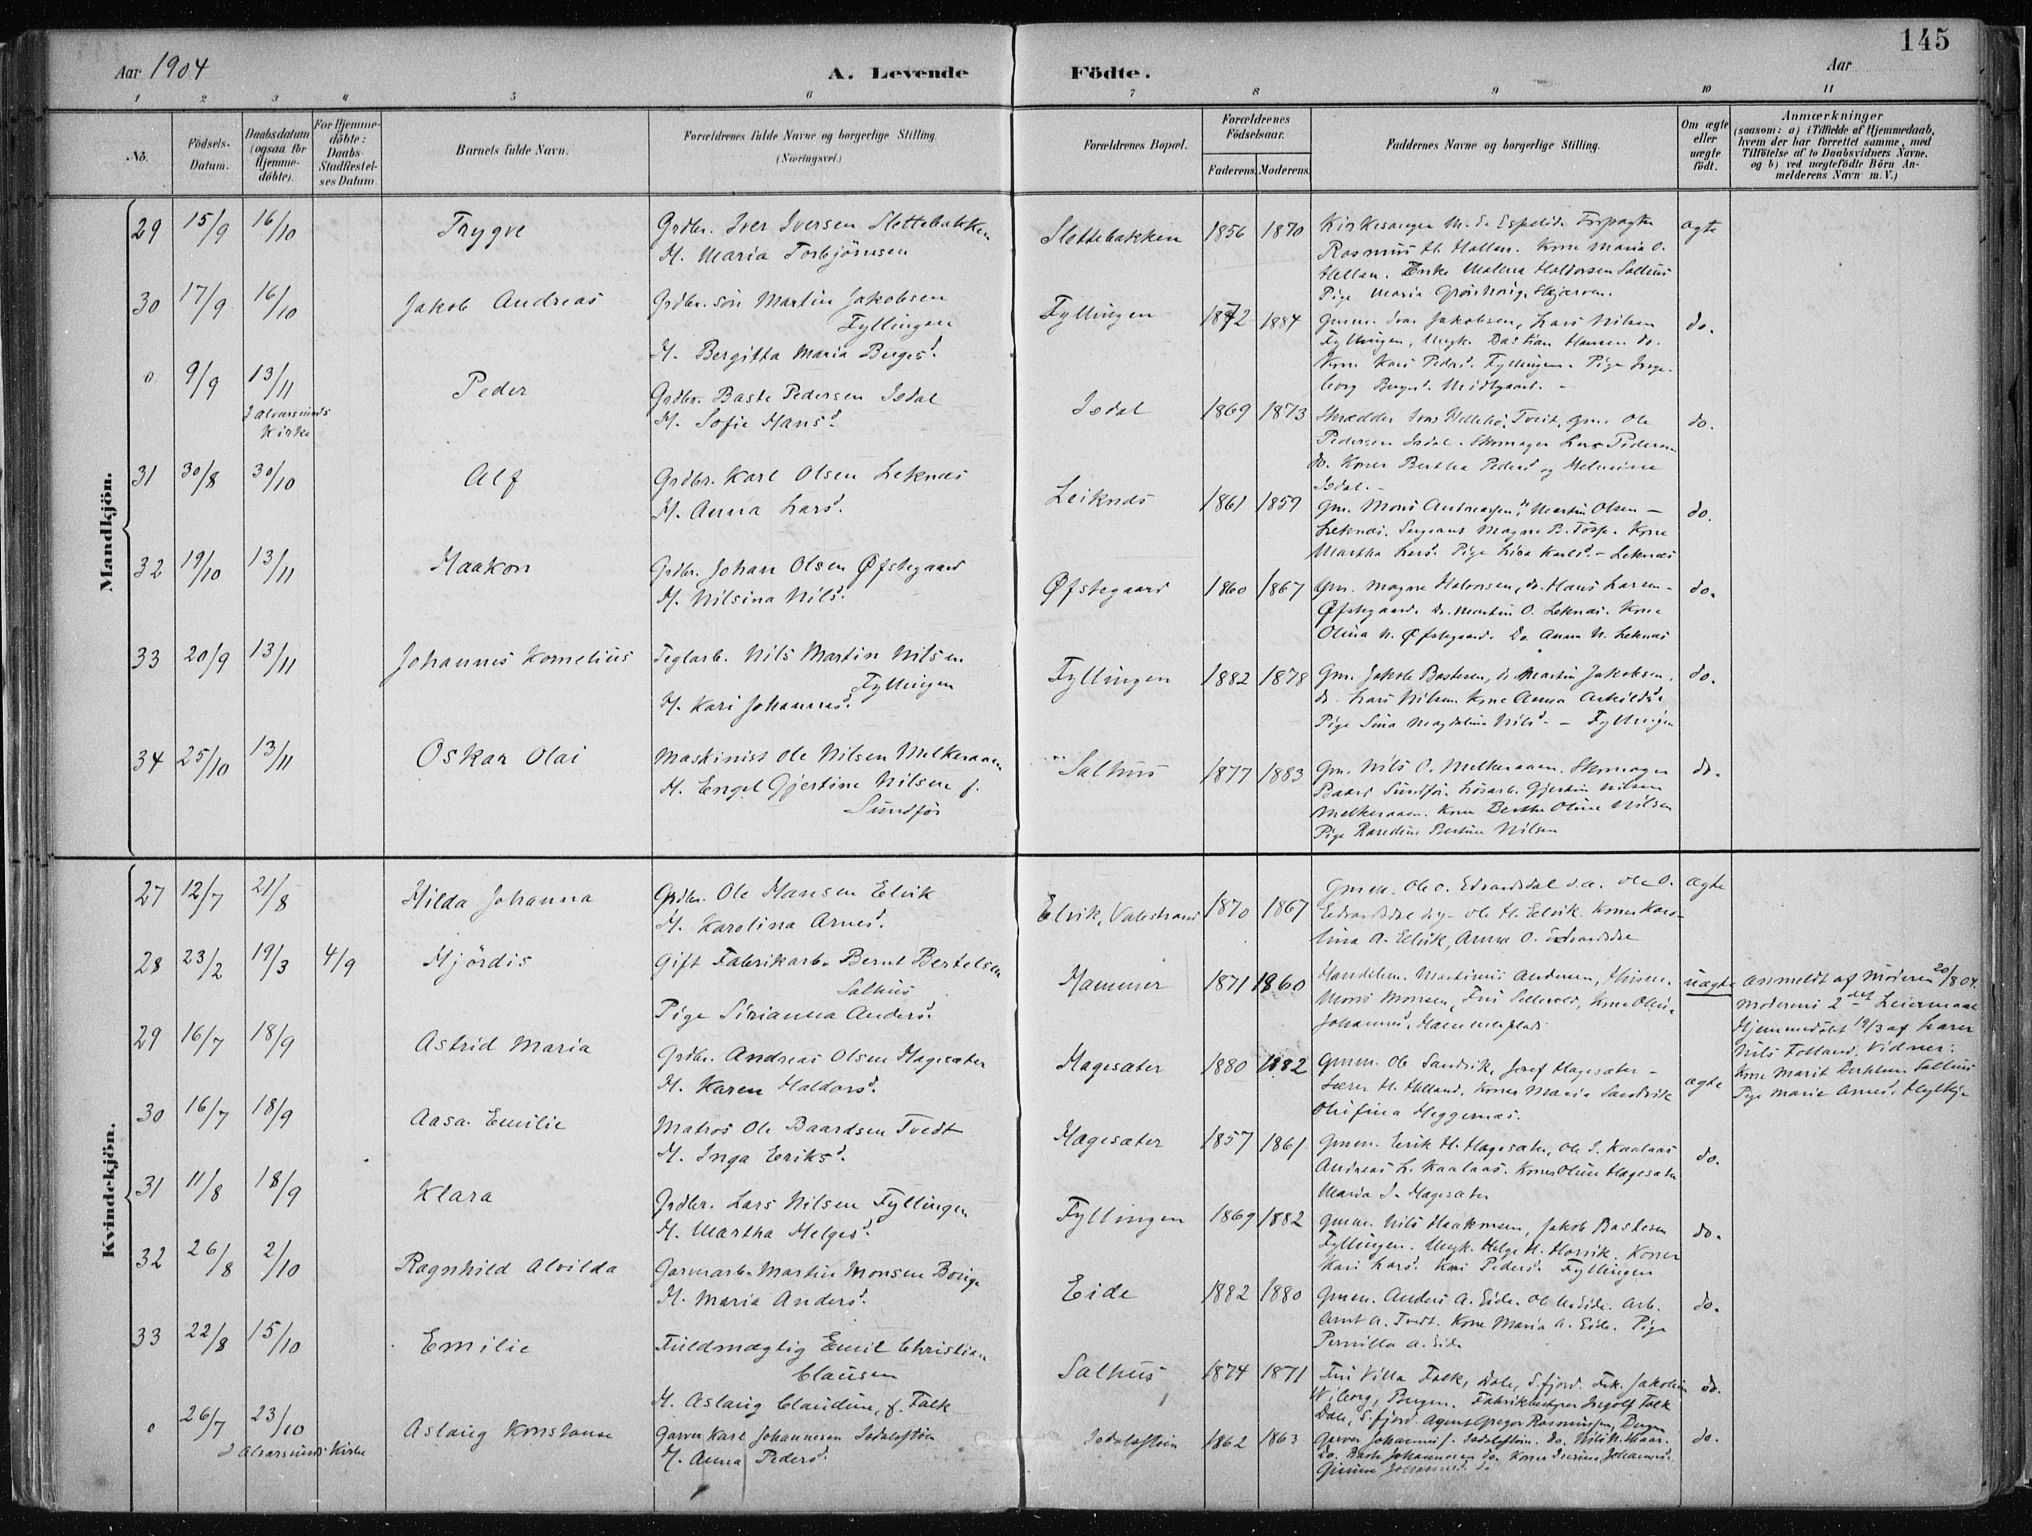 145
Aar 1904
A. Levende Födte.
Aar
1 2 3 4 5 6 7 8 9 10 11
No.
Födsels-Datum.
Daabsdatum (ogsaa for Hjemme-döbte).
For Hjemme-döbte: Daabs-Stadfæstel-ses Datum
Barnets fulde Navn.
Forældrenes fulde Navne og borgerlige Stilling. (Næringsvei.)
Forældrenes Bopæl.
Forældrenes Födselsaar.
Faderens. Moderens.
Faddernes Navne og borgerlige Stilling.
Om ægte eller uægte födt.
Anmærkninger
(saasom: a) i Tilfælde af Hjemmedaab, hvem der har forrettet samme, med Tilföielse af to Daabsvidners Navne. og b) ved uægtefödte Börn An-melderens Navn m. V.)
Mandkjön.
29 15/9 16/10 Trygve Grdbr. Iver Iversen Slettebakken
H. Maria Torbjörnsen
Slettebakken 1856 1870 Kirkesanger M. E. Espelid.
Rasmus H. Hellen. Kone Maria O.
Hellen. Enke Malena Haldorsen Salhus
Pige Maria
ægte
30 17/9 16/10 Jakob Andreas Grdbr. sön Martin Jakobsen
Fyllingen
H. Bergitta Maria Berges d.
Fyllingen 1872 1884 Gmm. Ivar Jakobsen, Lars Nilsen
Fyllingen, Ungk. Bastian Hansen do.
Kone Kari Peders d. Fyllingen. Pige Inge-
borg Berges d. Midtgaard.
do.
0 9/9 13/11 Peder Grdbr. Baste Pedersen Isdal
I Alversunds Kirke
H. Sofie Hans d.
Isdal 1869 1873 Skrædder Ivar Tveit, Gm. Ole
Pedersen Isdal. Skomager Lars Pedersen
do. Koner Bertha Peders d og
Isdal.
do.
31 30/8 30/10 Alf Grdbr. Karl Olsen Leknes
H. Anna Lars d.
Leiknes 1861 1859 Gm. Mons Andreassen, Martin Olsen
Leknes. Sergeant Magne B. Tosse. Kone
Martha Lars d. Pige Lisa Karls d. - Leknes
do.
32 19/10 13/11 Haakon Grdbr. Johan Olsen Øfstegaard
H. Nilsina Nils d.
Øfstegaard 1860 1867 Gm. Magne Halvorsen, do. Hans Larsen
Øfstegaard. do. Martin O. Leknes. Kone
Olina N. Øfstegaard. Do. Anna N. Leknes
do.
33 20/9 13/11 Johannes Kornelius Teglarb. Nils Martin Nilsen
Fyllingen
H. Kari Johannes d.
Fyllingen 1882 1878 Gm. Jakob Bastesen, do Martin Jakobsen.
do. Lars Nilsen. Kone Anna
Pige Sina Magdalena Nils d. - Fyllingen
do.
34 25/10 13/11 Oskar Olai Maskinist Ole Nilsen Melkeraaen
H. Engel Gjertine Nilsen f.
Sundför
Salhus 1877 1883 Gm. Nils O. Melkeraaen. Skomager
Baard Sundför. Gjertin Nilsen
Melkeraaen. Kone Berthe Oline Nilsen
Pige Nilsen
do.
Kvindekjön.
27 12/7 21/8 Hilda Johanna Grdbr. Ole Hansen Elvik
H. Karolina Arnes d.
Elvik, Valestrand 1870 1867 Gmm. Ole O. Edvardsdal s.a. Ole O.
Edvardsdal - Ole H. Elvik. Koner Karo-
lina A. Elvik, Anna O.
ægte
28 23/2 19/3 4/9 Hjördis Gift Fabrikarb. Bernt Bertelsen
Salhus
Pige Sirianna Anders d.
Hammer 1871 1860 Handelsm. Martinus Andersen,
Mons Monsen, Fru Sellevold, Kone
Johannes d. Hammer
uægte Anmeldt af Moderen 20/8 04.
Moderens 2det Leiermaal
Hjemmedöbt 19/3 af Lærer
Nils Fotland. Vidner:
Kone Marit Salhus
Pige Marie Arnes d.
29 16/7 18/9 Astrid Maria Grdbr. Andreas Olsen Hagesæter
H. Karen Haldors d.
Hagesæter 1880 1882 Gmm. Ole Sandvik, Josef Hagesæter
Lærer H. Helland, Koner Maria Sandvik
Olufina Heggernes.
ægte
30 16/7 18/9 Aasa Emilie Matros Ole Baardsen Tvedt
H. Inga Eriks d.
Hagesæter 1857 1861 Gmm. Eerik H. Hagesæter, Ole I. Kaalaas
Andreas L. Kaalaas. Koner Oline Hagesæter
Maria I. Hagesæter
do.
31 11/8 18/9 Klara Grdbr. Lars Nilsen Fyllingen
H. Martha Helges d.
Fyllingen 1869 1882 Gmm. Nils Haakonsen, Jakob Bastesen
Fyllingen. Ungk. Helge H. Koner
Kari Lars d. Kari Peders d. Fyllingen
do.
32 26/8 2/10 Ragnhild Alvilda Garverarb. Martin Monsen
H. Maria Anders d.
Eide 1882 1880 Gmm. Anders A. Eide. Ole Eide. Arb.
Arnt A. Tvedt. Kone Maria A. Eide. Pige
Pernilla A. Eide
do.
33 22/8 15/10 Emilie Fuldmægtig Emil Christian
Clausen
H. Aslaug Claudine, f. Falk
Salhus 1874 1871 Fru Villa Falk, Dale, S.fjord. Frk.
Wiberg, Bergen. Fabrikbestyrer Ingolf Falk
Dale, S.fjord. Agent Gregor Rasmussen, Bergen
do.
0 26/7 23/10 Aslaug Konstanse Garver Karl Johannesen Isdalsstöin
I Alversunds Kirke
H. Anna Peders d.
Isdalsstöin 1862 1863 Garver Johannes J. Isdalsstöin. do. Nils
do. Baste Johannesen do. Koner Johannes d.
do.